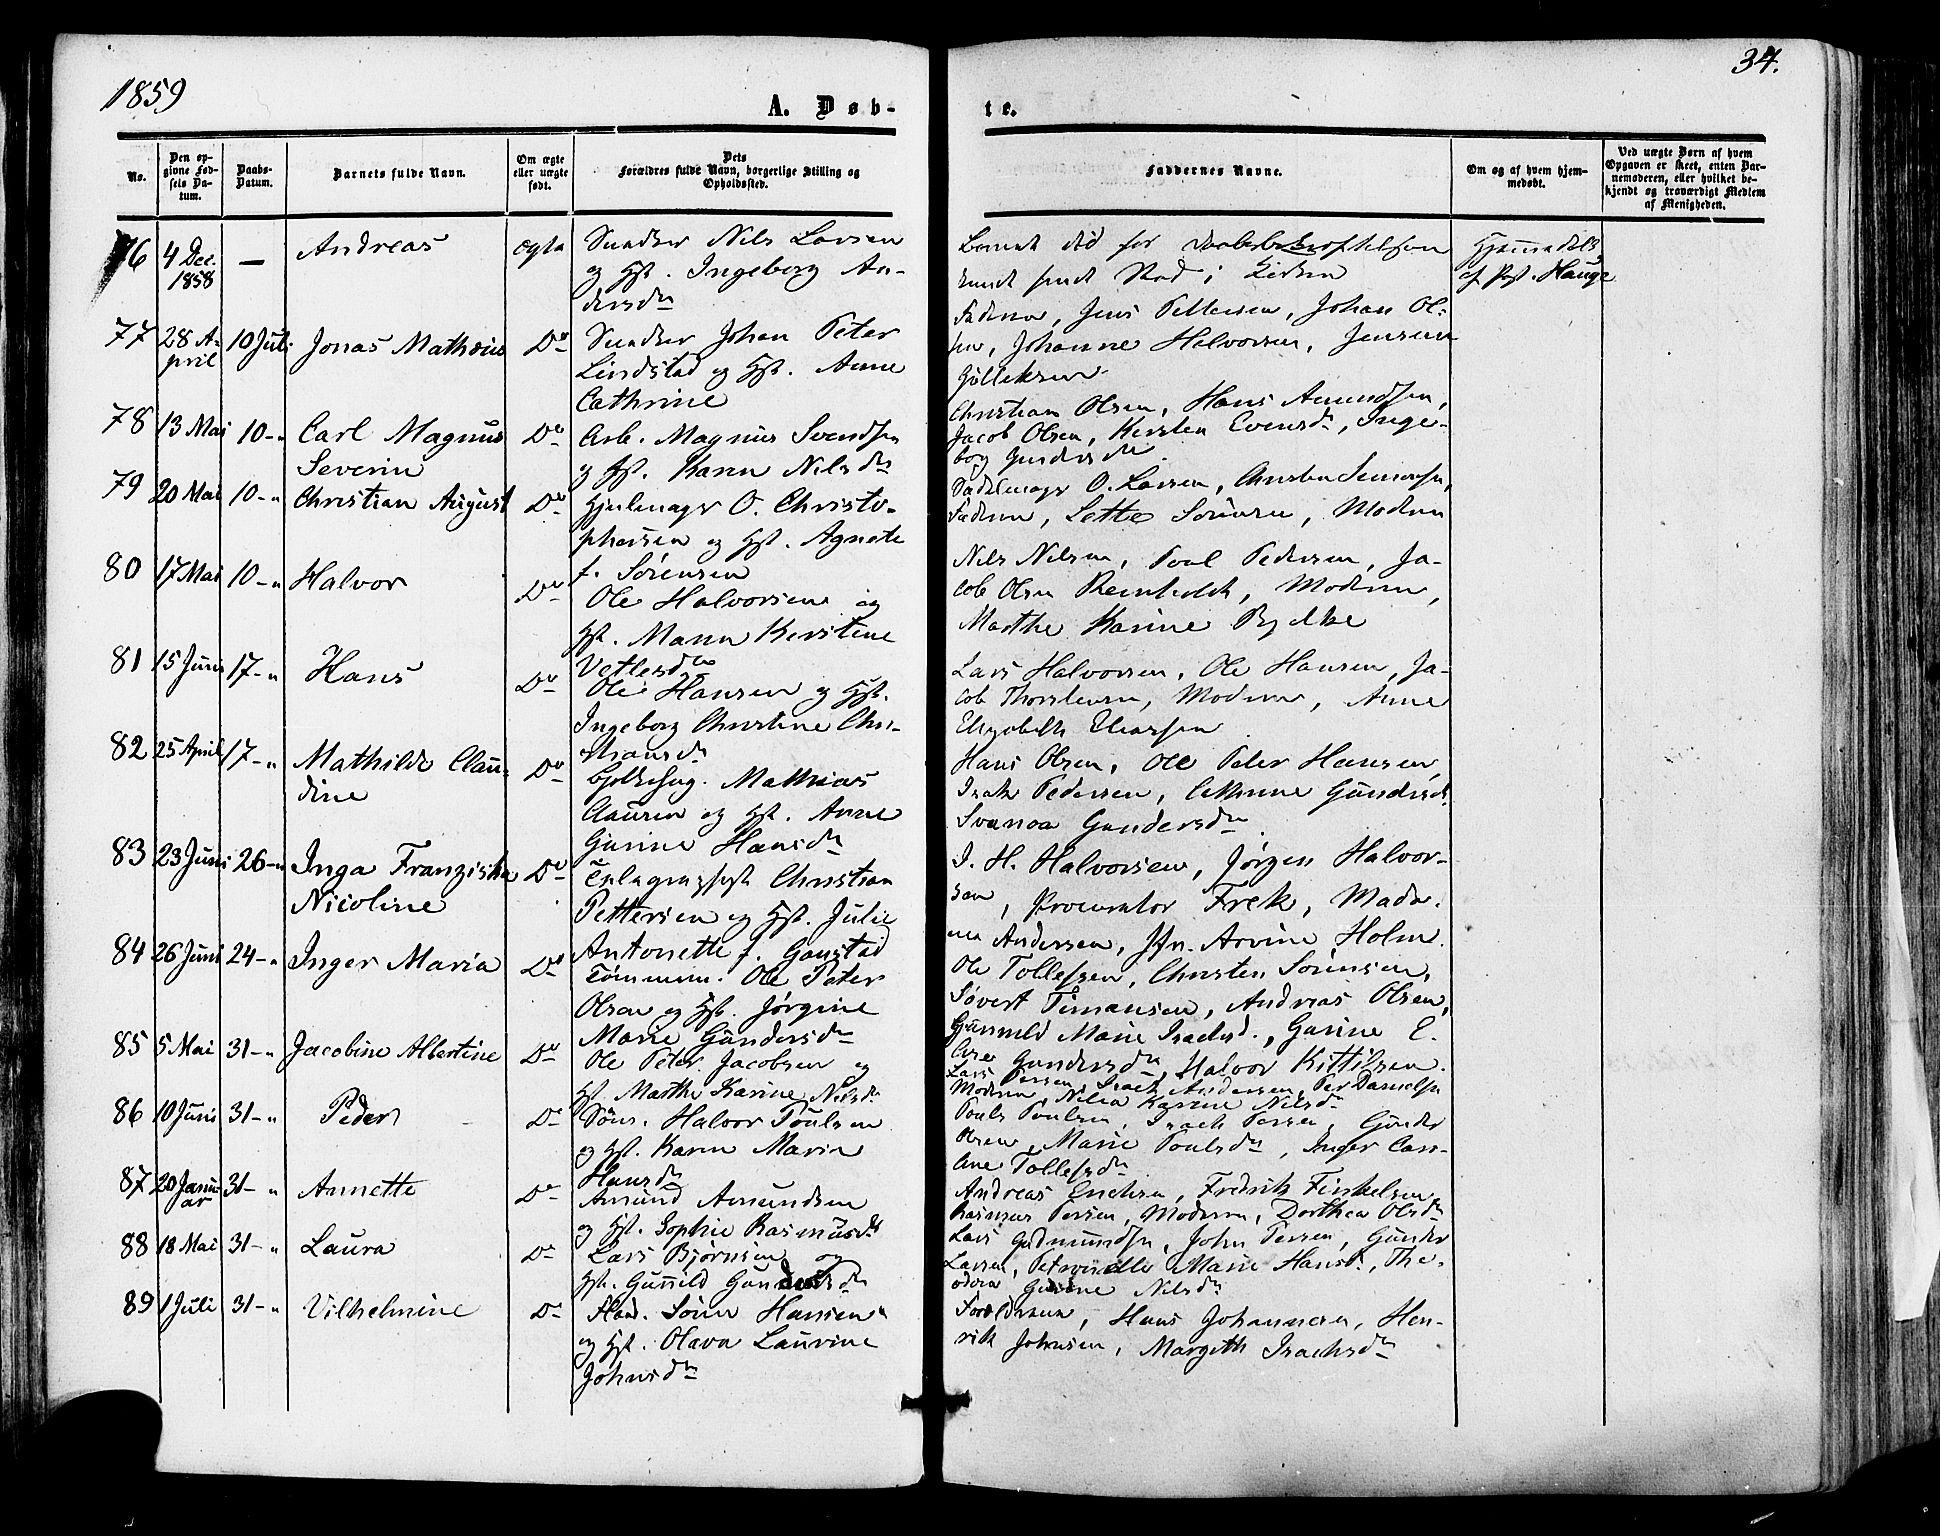 1859
34.
A. Døb-
te.
No.
Den op-
givne Fød-
sels Da-
tum.
Daabs-
Datum.
Barnets fulde Navn.
Om ægte
eller uægte
født.
Dets
Forældres fulde Navn, borgerlige Stilling og
Opholdssted.
Faddernes Navne.
Om og af hvem hjem-
medøbt.
Ved uægte Børn af hvem
Opgaven er skeet, enten Bar-
nemoderen, eller hvilket be-
kjendt og troværdigt Medlem
af Menigheden.
76 4 Dec. 1858 — Andreas ægte
Nils Larsen
og Hst. Ingeborg An-
dersdn
Barnet død før
Sted i Kirken
Hjemmedøbt
af Pst. Hauge
77 28 A-
pril 10 Juli Jonas Mathæus Do
Johan Peter
Lindstad og Hst. Anne
Cathrine
Faderen, Jens Pettersen, Johan Ol-
sen, Johanne Halvorsen, Jensine
Gulleksen
78 13 Mai 10-" Carl Magnus
Severin Do
Arb. Magnus Svendsen
og Hst. Karen Nilsdn
Christian Olsen, Hans Amundsen,
Jacob Olsen, Kirsten Evensdn, Inge-
borg Gundersdn
79 20 Mai 10-" Christian August Do
Hjulmager O. Christo-
phersen og Hst. Agnete
f. Sørensen
Sadelmager O. Larsen, Christen Simonsen,
Faderen, Sette Sørensen, Moderen
80 17 Mai 10-" Halvor Do
Ole Halvorsen og
Hst. Maren Kirstine
Vetlesdn
Nils Nilsen, Poul Pedersen, Ja-
cob Olsen Reinholdt, Moderen,
Marthe Karine Rydke
81 15 Juni 17-" Hans Do
Ole Hansen og Hst.
Ingeborg Christine Chri-
stiansdn
Lars Halvorsen, Ole Hansen, Ja-
cob Thorstensen, Moderen, Anne
Elisabeth Eliassen
82 25 April 17-" Mathilde Clau-
dine Do
Mathias
Clausen og Hst. Anne
Gurine Hansdn
Hans Olsen, Ole Peter Hansen,
Isak Pedersen, Cathrine Gundersd.
Svanoa Gundersdn
83 23 Juni 26-" Inga Franziska
Nicoline Do
Christian
Pettersen og Hst. Julie
Antonette f. Gaustad
J. H. Halvorsen, Jørgen Halvor-
sen, Procurator Frek, Mada-
me Andersen, Jfr. Arvine Holm.
84 26 Juni 24-" Inger Maria Do
Tømmerm. Ole Peter
Olsen og Hst. Jørgine
Marie Gundersdn
Ole Tollefsen, Christen Sørensen,
Sivert Timansen, Andreas Olsen,
Gunnild Marie Isachsd., Gurine E.
85 5 Mai 31-" Jacobine Albertine Do
Ole Peter Jacobsen og
Hst. Marthe Karine Nilsdn
Gundersdn, Halvor Kittilsen.
Lars Persen, Isach Andersen, Per Danielsen
Moderen, Nilia Karine Nilsdn
86 10 Juni 31-" Peder Do
Søm. Halvor Poulsen
og Hst. Karen Maria
Hansdn
Pouls Poulsen, Isach Persen, Gunder
Olsen, Marie Poulsdn, Inger Caro-
line Tollefsdn
87 20 Janu-
ar 31-" Annette Do
Amund Amundsen
og Hst. Sophie Rasmusdn
Andreas Erichsen, Fredrik Finkelsen,
Rasmus Persen, Moderen, Dorthea Olsdn
88 18 Mai 31-" Laura Do
Lars Bjørnsen og
Hst. Gunnild Gundersdn
Lars Gudmundsen, John Persen, Gunder
Larsen, Petronelle Marie Hansd., The-
odora Gurine Nilsdn
89 1 Juli 31-" Vilhelmine Do
Søren Hansen
og Hst. Olava Laurine
Johnsdn
Forældrene, Hans Johannesen, Hen-
rik Johnsen, Margith Isachsdn